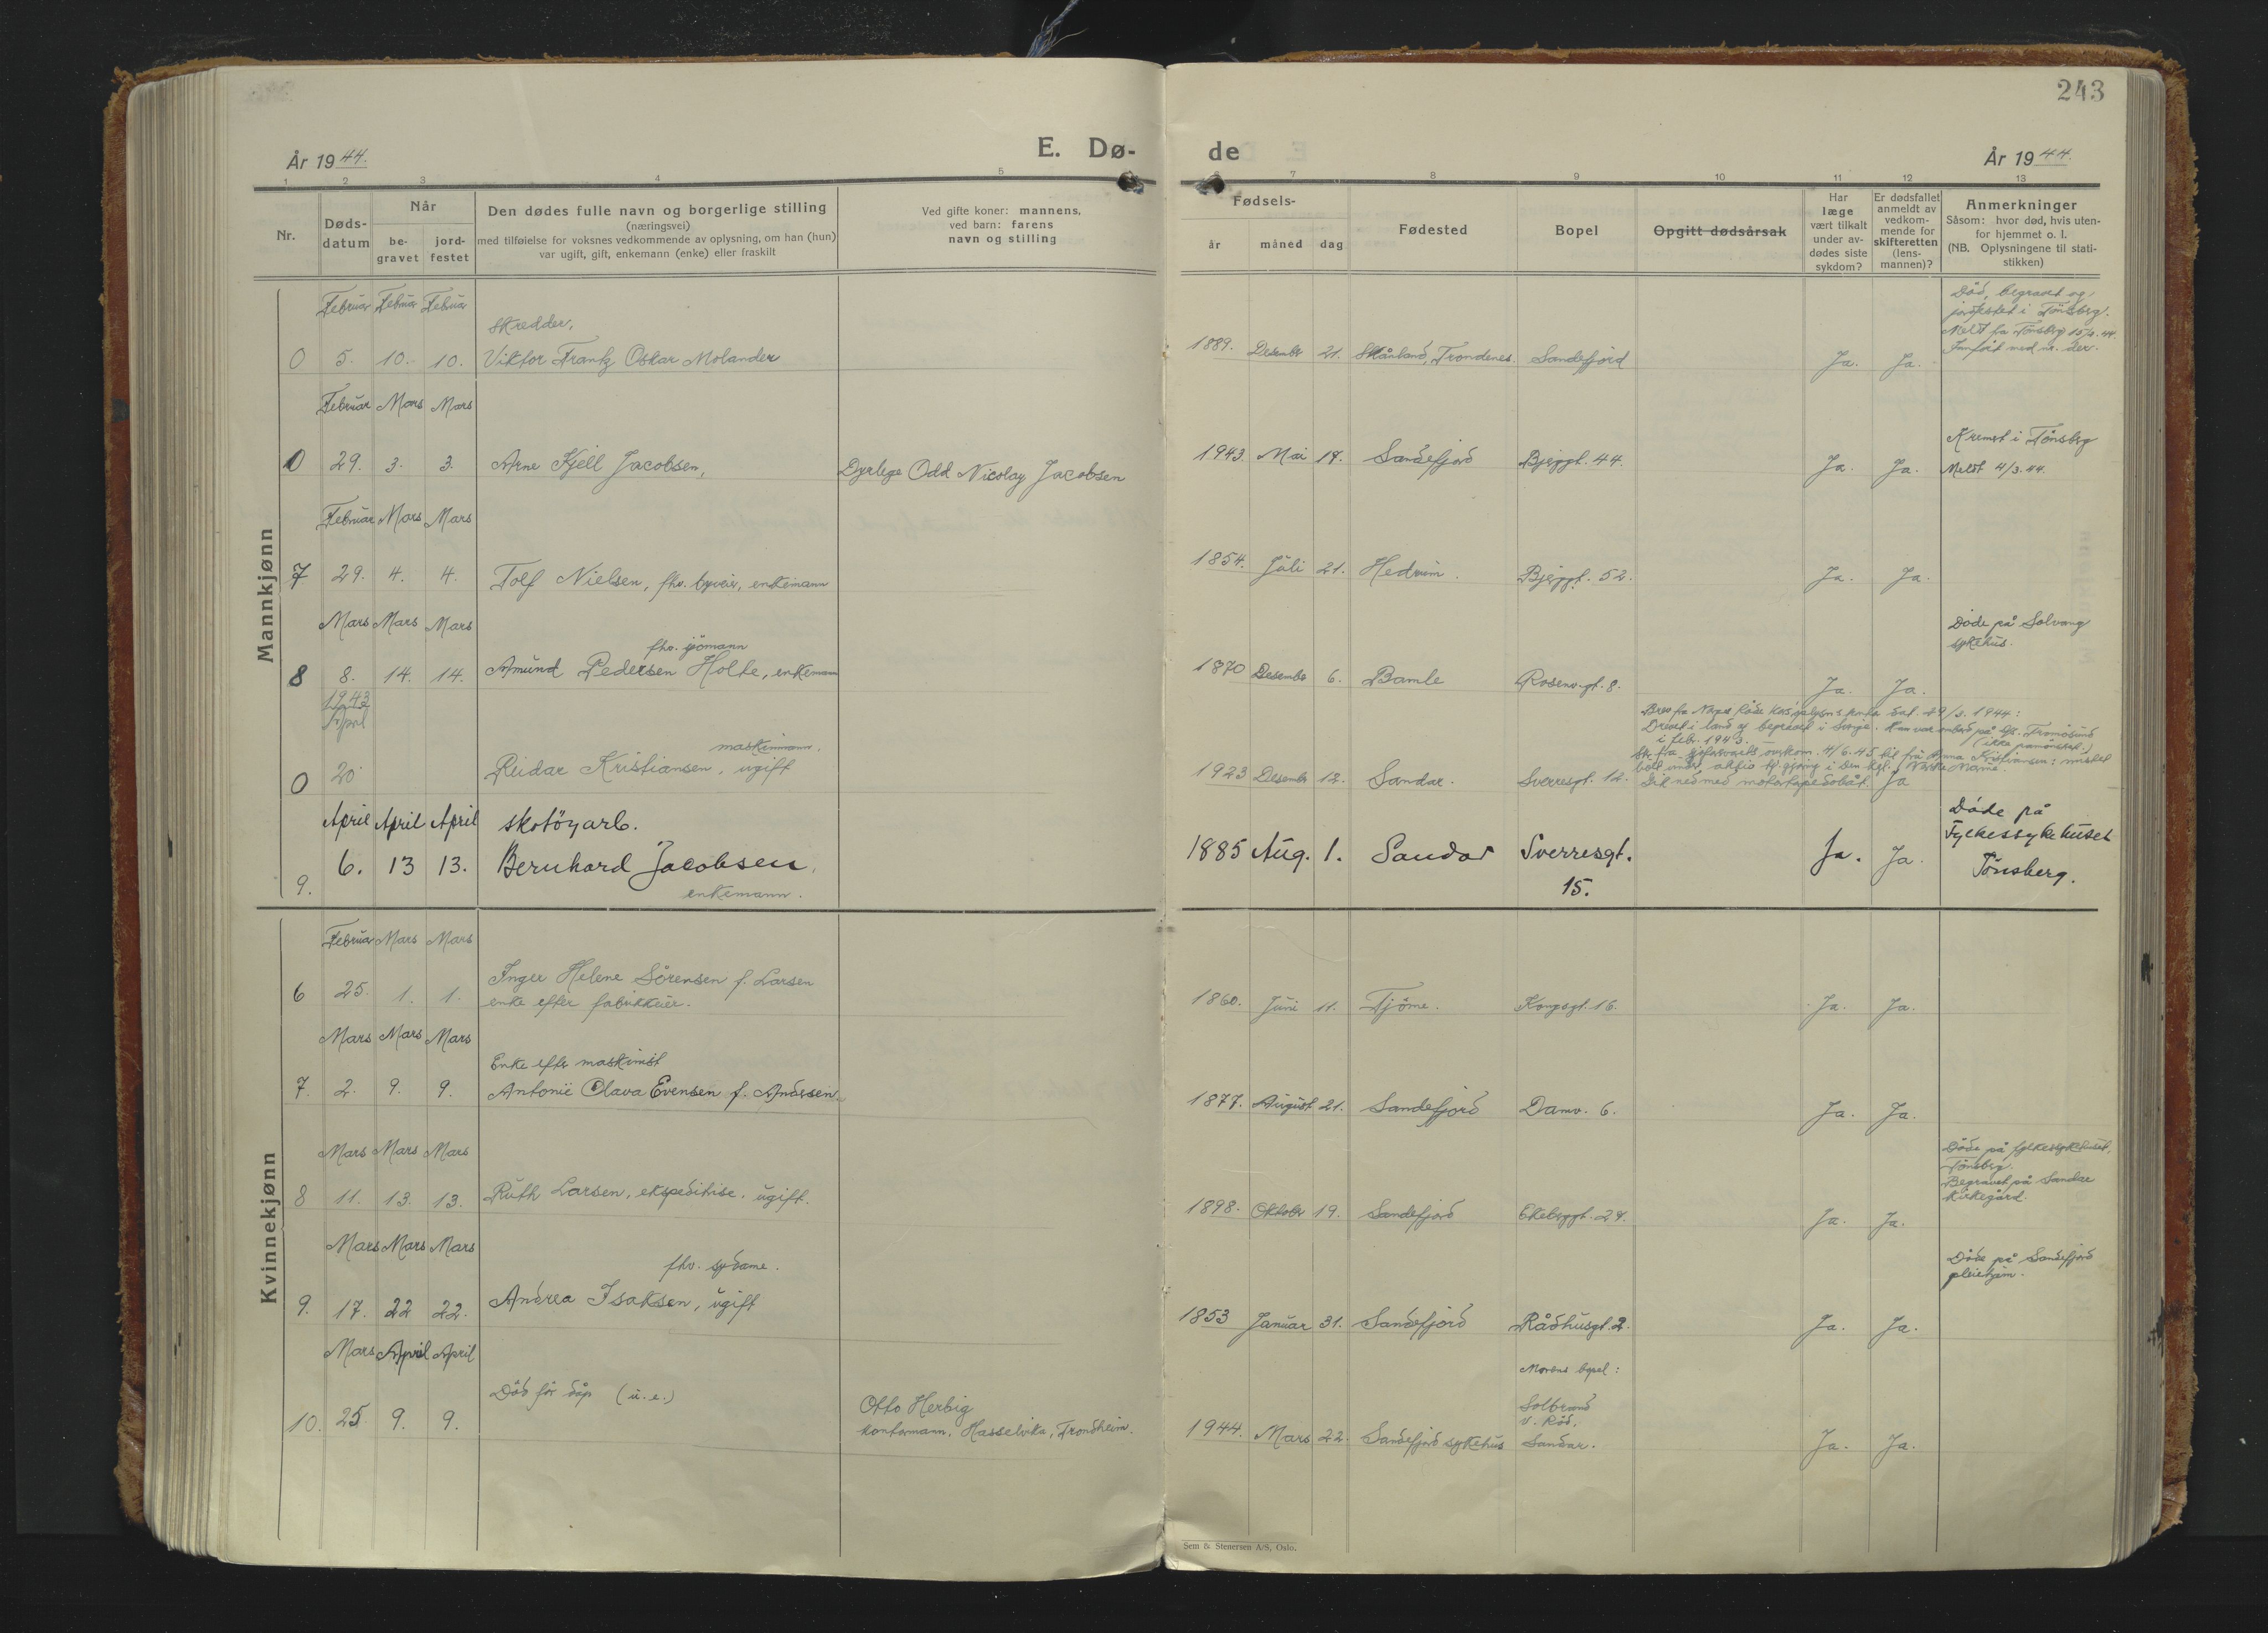 243
År 1944.
E. Dø-
de
År 1944.
1 2 3 4 5 6 7 8 9 10 11 12 13
Nr.
Døds-
datum
Når
be-
gravet
jord-
festet
Den dødes fulle navn og borgerlige stilling
(næringsvei)
med tilføielse for voksnes vedkommende av oplysning, om han (hun)
var ugift, gift, enkemann (enke) eller fraskilt
Ved gifte koner: mannens,
ved barn: farens
navn og stilling
Fødsels-
år
måned
dag
Fødested
Bopel
Opgitt dødsårsak
Har
læge
vært tilkalt
under av-
dødes siste
sykdom?
Er dødsfallet
anmeldt av
vedkom-
mende for
skifteretten
(lens-
mannen)?
Anmerkninger
Såsom: hvor død, hvis uten-
for hjemmet o. l.
(NB. Oplysningene til stati-
stikken)
Mannkjønn
Februar Februar Februar
Skredder,
0 5. 10. 10. Viktor Frantz Oskar Molander
1889. Desember 21. Skånland, Trondenes. Sandefjord Ja. Ja.
Död, begravet og
jordfestet i Tönsberg.
Meldt fra Tönsberg 15/2.44.
Jamfört med nr. der.
Februar Mars Mars
0 29. 3. 3. Arne Kjell Jacobsen, Dyrlege Odd Nicolay Jacobsen
1943. Mai 14. Sandefjord Bjerggt. 44. Ja. Ja.
Kremert i Tönsbrg
Meldt 4/3.44.
Februar Mars Mars
7 29. 4. 4. Tolf Nielsen, fhv. byveier, enkemann
1854. Juli 21. Hedrum. Bjerggt. 52. Ja. Ja.
Mars Mars Mars
fhv. sjömann
8 8. 14. 14. Amund Pedersen Holte, enkemann
1870 Desember 6. Bamle Rosenv.gt. 8. Ja. Ja.
Döde på Solvang
sykehus.
1943
April
maskinmann,
0 20 Reidar Kristiansen, ugift
1923 Desember 12. Sandar. Sverresgt. 12. Ja
Brev fra Norges Röde Kors dat. 29/3. 1944:
Drevet i land og begravet i Sverige. Han var ombord på D/S. Tromösund
i febr. 1943.
Gik ned med motortorpedobåt.
April April April skotöyarb.
9. 6. 13 13. Bernhard Jacobsen,
enkemann.
1885 Aug. 1. Sandar Sverresgt.
15.
Ja. Ja.
Döde på
Fylkessykehuset
Tönsberg.
Kvinnekjønn
Februar Mars Mars
6 25. 1. 1. Inger Helene Sörensen f. Larsen
enke efter fabrikkeier.
1860. Juni 11. Tjöme. Kongsgt. 16. Ja. Ja.
Mars Mars Mars
Enke efter maskinist
7. 2. 9. 9. Antonie Olava Evensen f. Andersen.
1877. August 21. Sandefjord Damv. 6. Ja. Ja.
Mars Mars Mars
8 11. 13. 13. Ruth Larsen, ekspeditrise. ugift.
1898. Oktober 19. Sandefjord Ekebrggt. 27. Ja. Ja.
Döde på fylkessykehuset,
Tönsbrg.
Begravet på Sandar
kirkegård.
Mars Mars Mars
fhv. sydame.
9. 17. 22 22. Andrea Isaksen, ugift
1853 Januar 31. Sandefjord Rådhusgt. 2. Ja. Ja.
Döde på Sandefjord
pleiehjem.
Mars April April
10. 25. 9. 9. Död för dåp (u.e.)
Otto Herbig
kontormann, Hasselvika, Trondheim.
1944. Mars 22. Sandefjord sykehus
Morens bopel:
Solbrand
v. Röd,
Sandar.
Ja. Ja.
Sem & Stenersen A/S, Oslo.